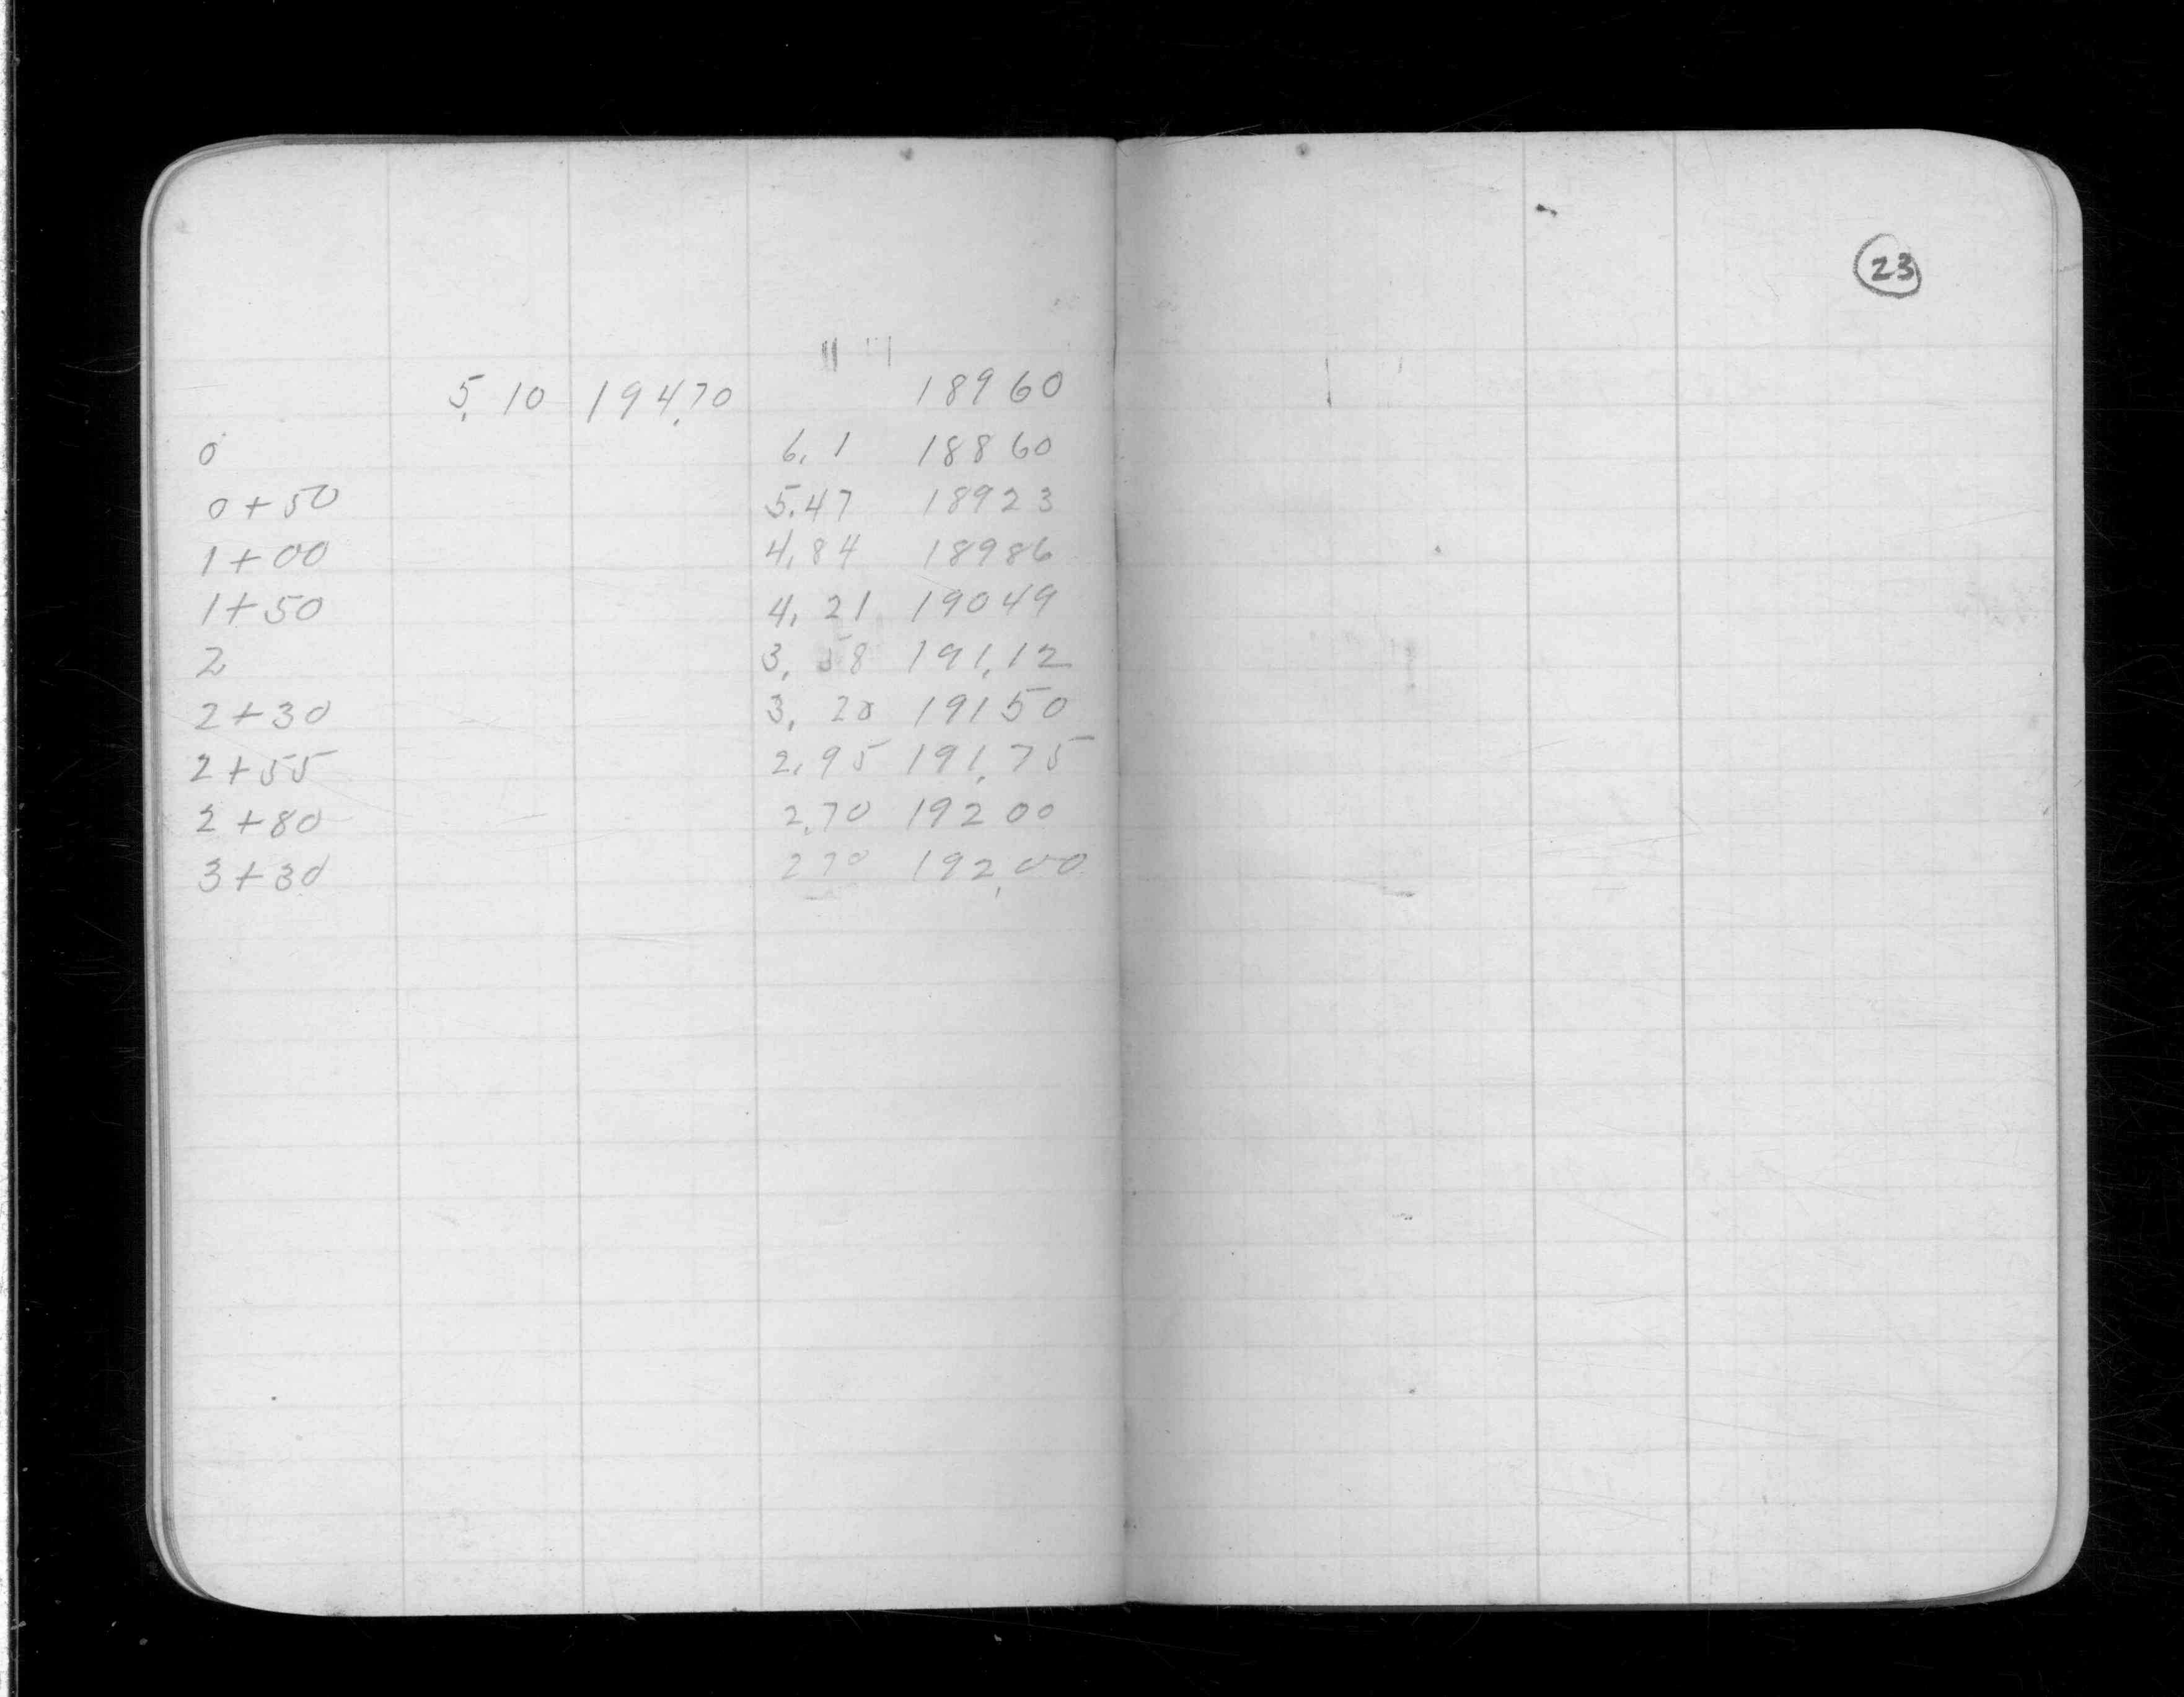 23
5.10 194.70 18960
0 6.1 18860
0+50 5.47 18923
1+00 4.84 18986
1+50 4.21 19049
2 3.58 191.12
2+30 3.20 19150
2+55 2.95 191.75
2+80 2.70 19200
3+30 270 192.00